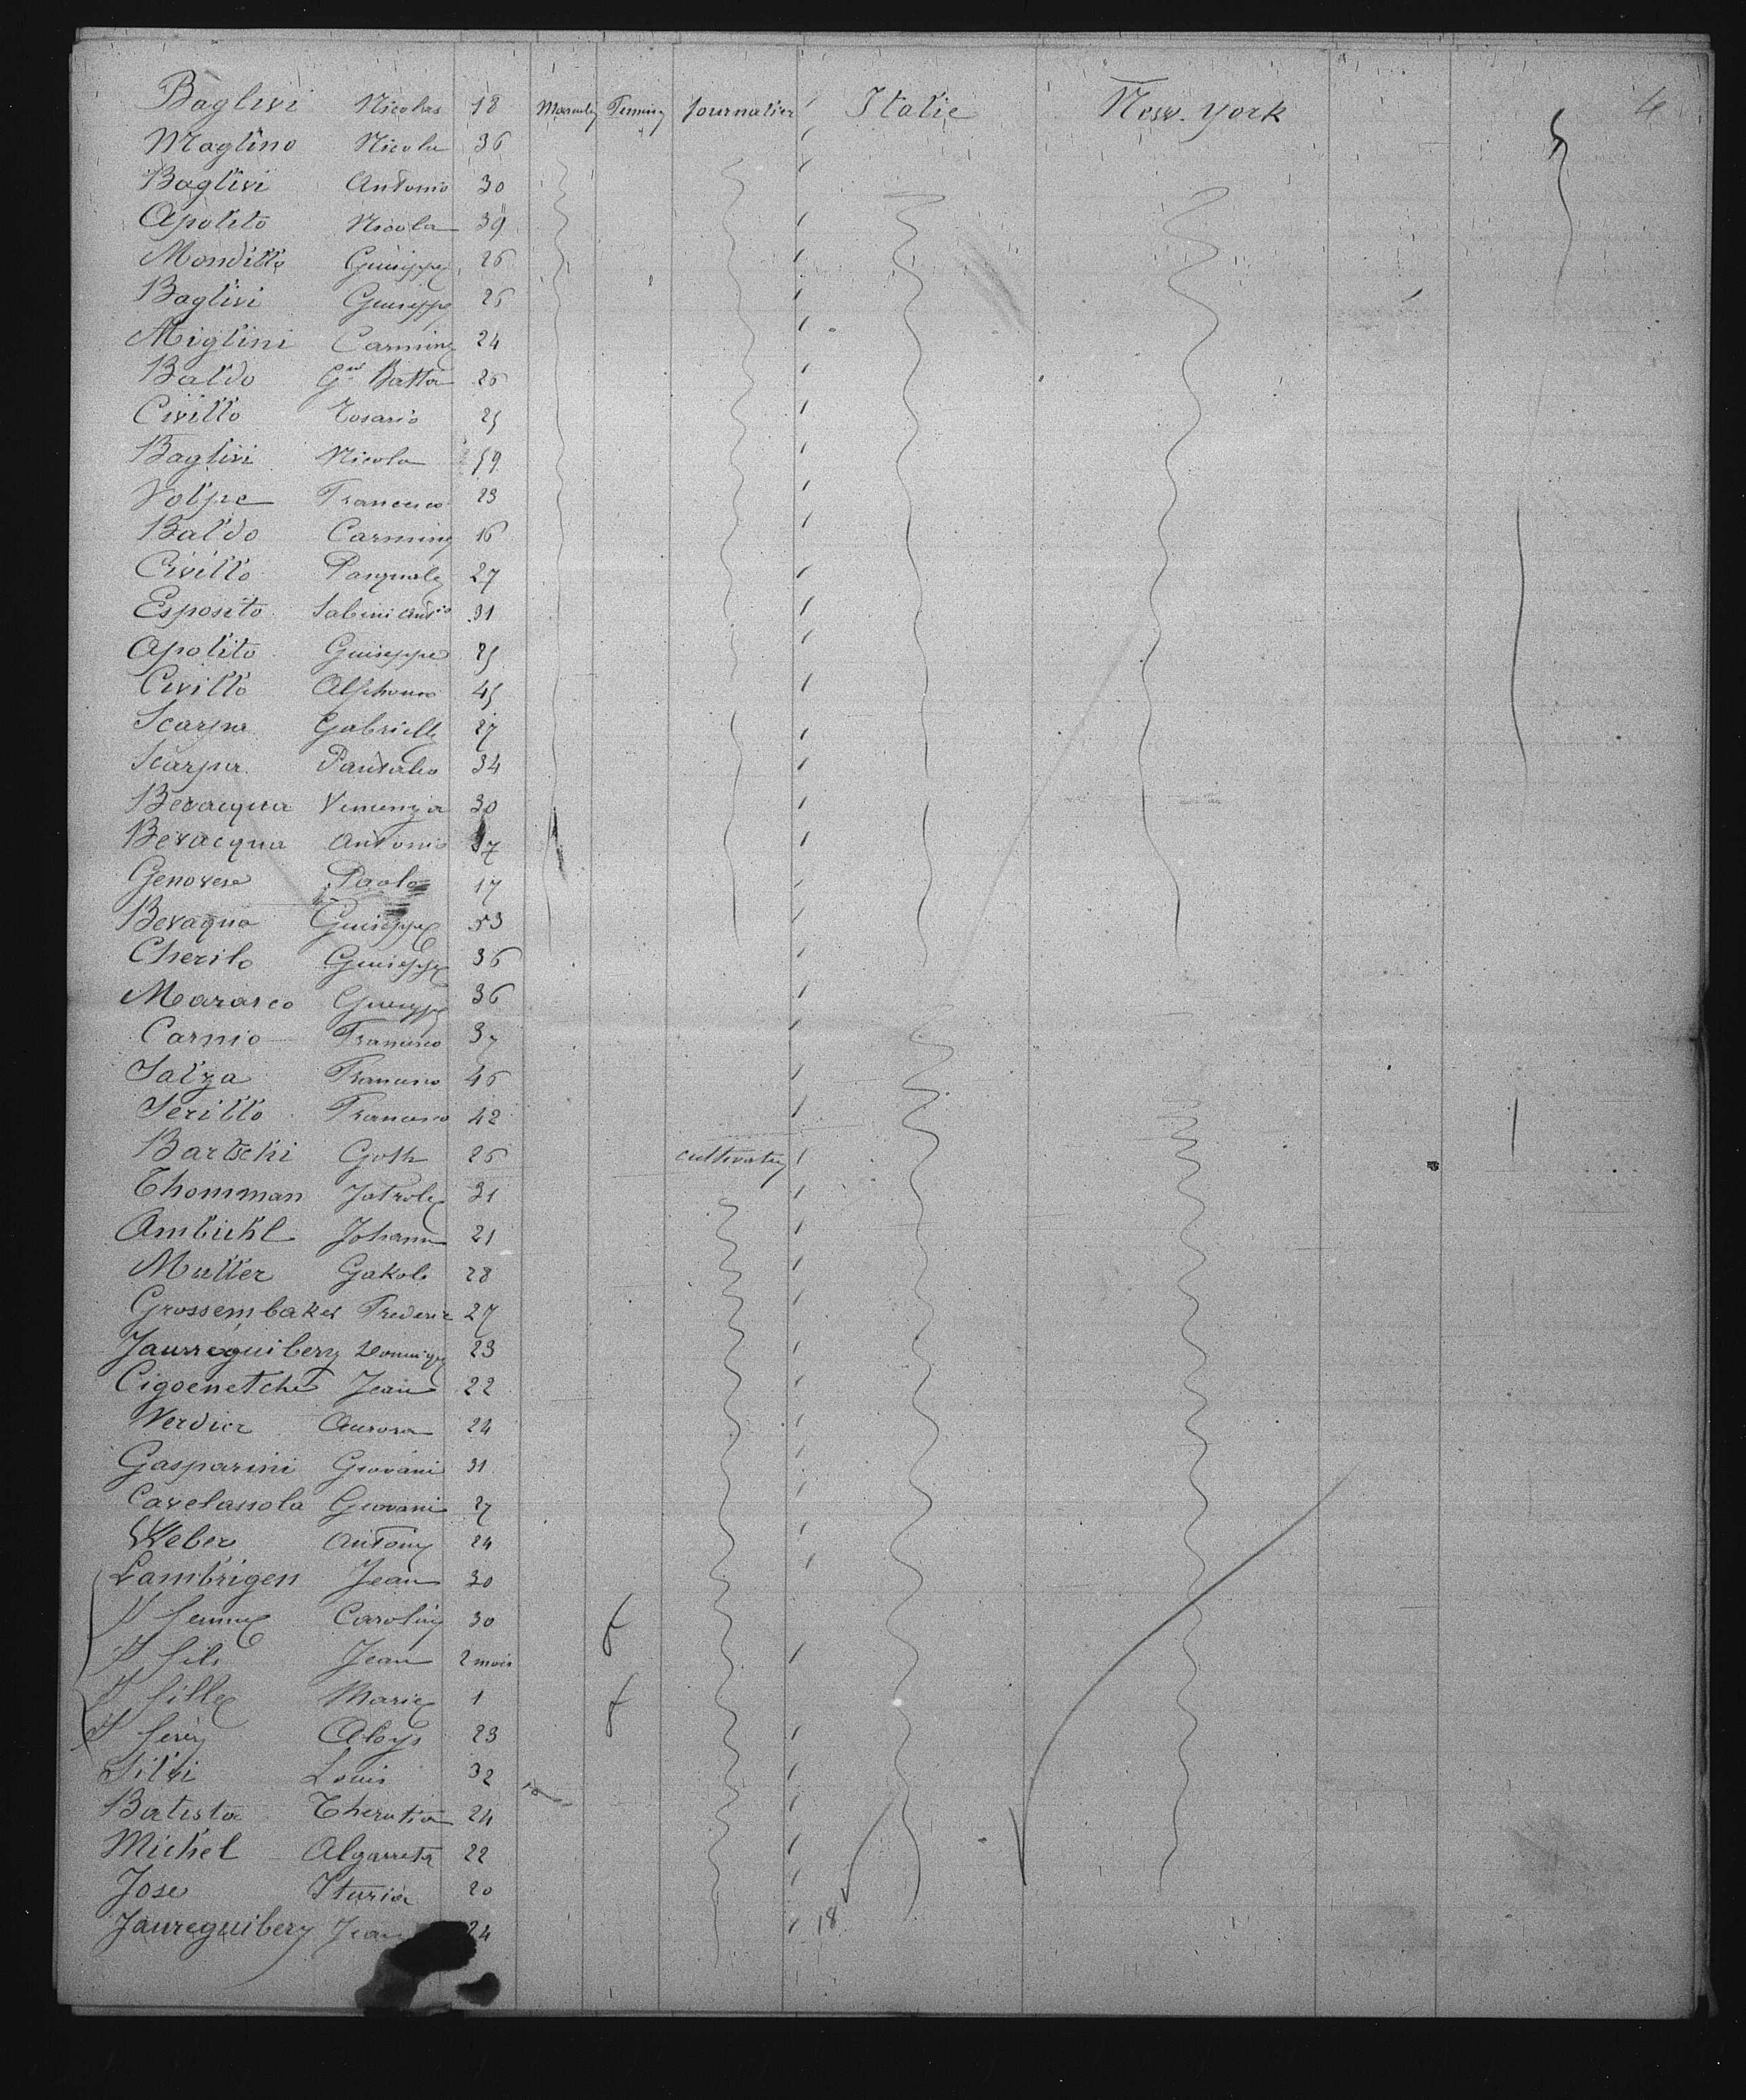 Baglivi Nicolas 18 Masculin Feminin Journalier Italie New-York 4
Maglino Nicola 36
Baglivi Antonio 30
Apolito Nicola 39
Mondillo Guiseppe 26
Baglivi Guiseppe 26
Miglini Carmine 24
Baldo Gni Batta 26
Civillo Rosario 25
Baglivi Nicola 59
Volpe Francesco 23
Baldo Carmine 16
Civillo Pasquale 27
Esposito Sabini Antio 31
Apolito Guiseppe 25
Civillo Alphonso 45
Scarpa Gabrielle 27
Scarpa Pantaleo 34
Bevacqua Vincenzia 30
Bevacqua Antonio 37
Genovese Paolo 17
Bevaqua Guiseppe 53
Cherilo Guiseppe 36
Marasco Guiseppe 36
Carnio Francesco 37
Salza Francesco 46
Serillo Francesco 42
Bartschi Goth 26 cultivateur
Thomman 31
Ambuhl Johann 21
Muller Gakob 28
Grossembaker Frederic 27
Jaurreguibery Dominique 23
Cigoenetche Jean 22
Verdier Aurora 24
Gasparini Giovani 31
Cavelassola Giovani 27
Weber Antony 24
Lambrigen Jean 30
S femme Caroline 30
S fils Jean 2 mois
S fille Marie 1
S frère Aloys 23
Silvi Louis 32
Batista 24
Michel Algarreta 22
Jose Ituria 20
Jaureguibery Jean 24 18